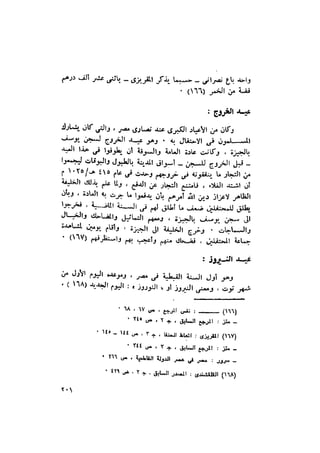 واحد باع نصرانى ـ حسبما يذكر المقريزى ـ باثنى عشر ألف درهم
فضة من الخمر (١٦٦) ٠
عيـد الخروج :
وكان من الأعياد الكبرى عند نصارى مصر ، والتى كان يشارك
المسـلمون فى الاحتفال به ٠ وهو عيـد الخروج لسجن يوسف
بالجيزة ، وكانت عادة العامة والسوقة أن يطوفوا فى هذا العيد
ـ قبل الخروج للسجن ـ أسواق المدينة بالطبول والبوقات ليجمعوا
من التجار ما ينفقونه فى خروجهم وحدث فى عام ٤١٥ هـ/١٠٢٥ م
أن اشتد الغلاء ، فامتنع التجار عن الدفع ، ولما علم بذلك الخليفة
الظاهر لاعزاز دين الله أمرهم بأن يدفعوا ما جرت به العادة ، وبأن
يطلق للمحتفلين ضعف ما أطلق لهم فى السـنة الماضـية ، فخرجوا
الى سجن يوسف بالجيزة ، ومعهم التماثيل والمضاحك والخيـال
والسماجات ٠ وخرج الخليفة الى الجيزة ، وأقام يومين لمشاهدة
جماعة المحتفلين ، فضحك منهم وأعجب بهم واستظرفهم (١٦٧) ٠
عيـد النـيروز :
وهو أول السنة القبطية فى مصر ، وموعده اليوم الأول من
شهر توت ، ومعنى النيروز أو « النوروز » : اليوم الجديد (١٦٨) ٠
(١٦٦) ــــــــ : نفس المرجع ، ص ٦٧ ، ٦٨ ٠
ـ متز : المرجع السابق ، ج ٢ ، ص ٢٤٥ ٠
(١٦٧) المقريزى : اتعاظ الحنفا ، ج ٢ ، ص ١٤٤ ـ ١٤٥ ٠
ـ متز : المرجع السابق ، ج ٢ ، ص ٢٤٤ ٠
ـ سرور : مصر فى عصر الدولة الفاطمية ، ص ٢٦٦ ٠
(١٦٨) القلقشندى : المصدر السابق ، ج ٢ ، ص ٤٢٩ ٠
٢٠١